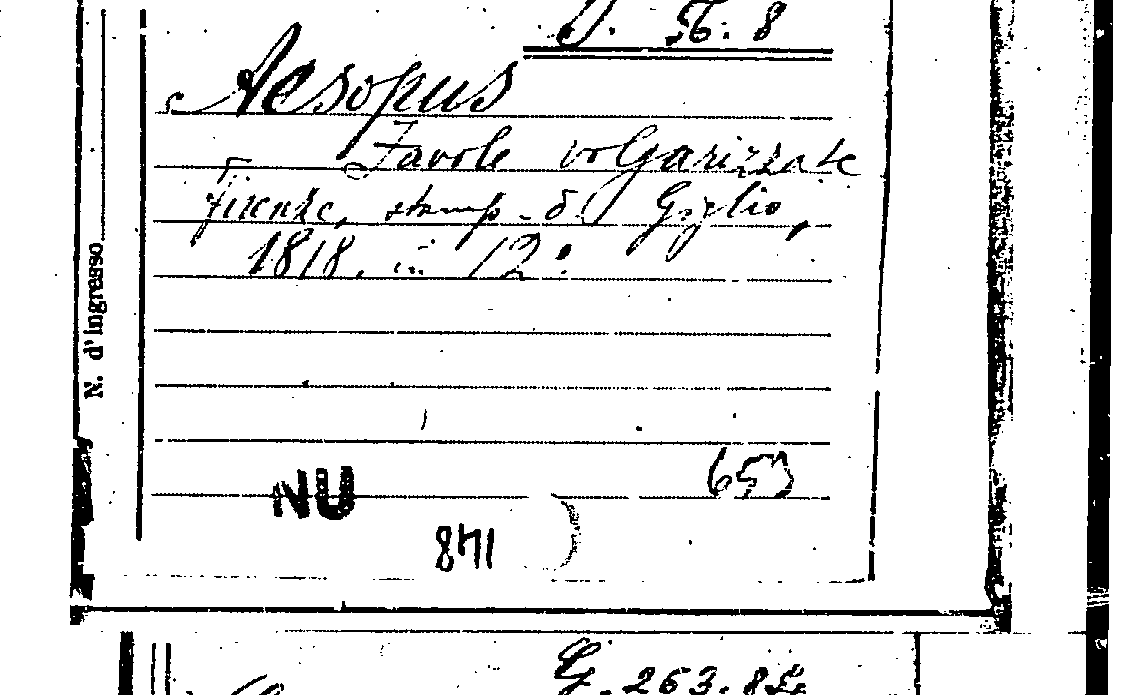 8
Aesopus
Favole volgarizzate
Firenze, stamp. di Giglio,
1818. in 12º
N. d'ingresso
653
NU
841
G. 263. 8